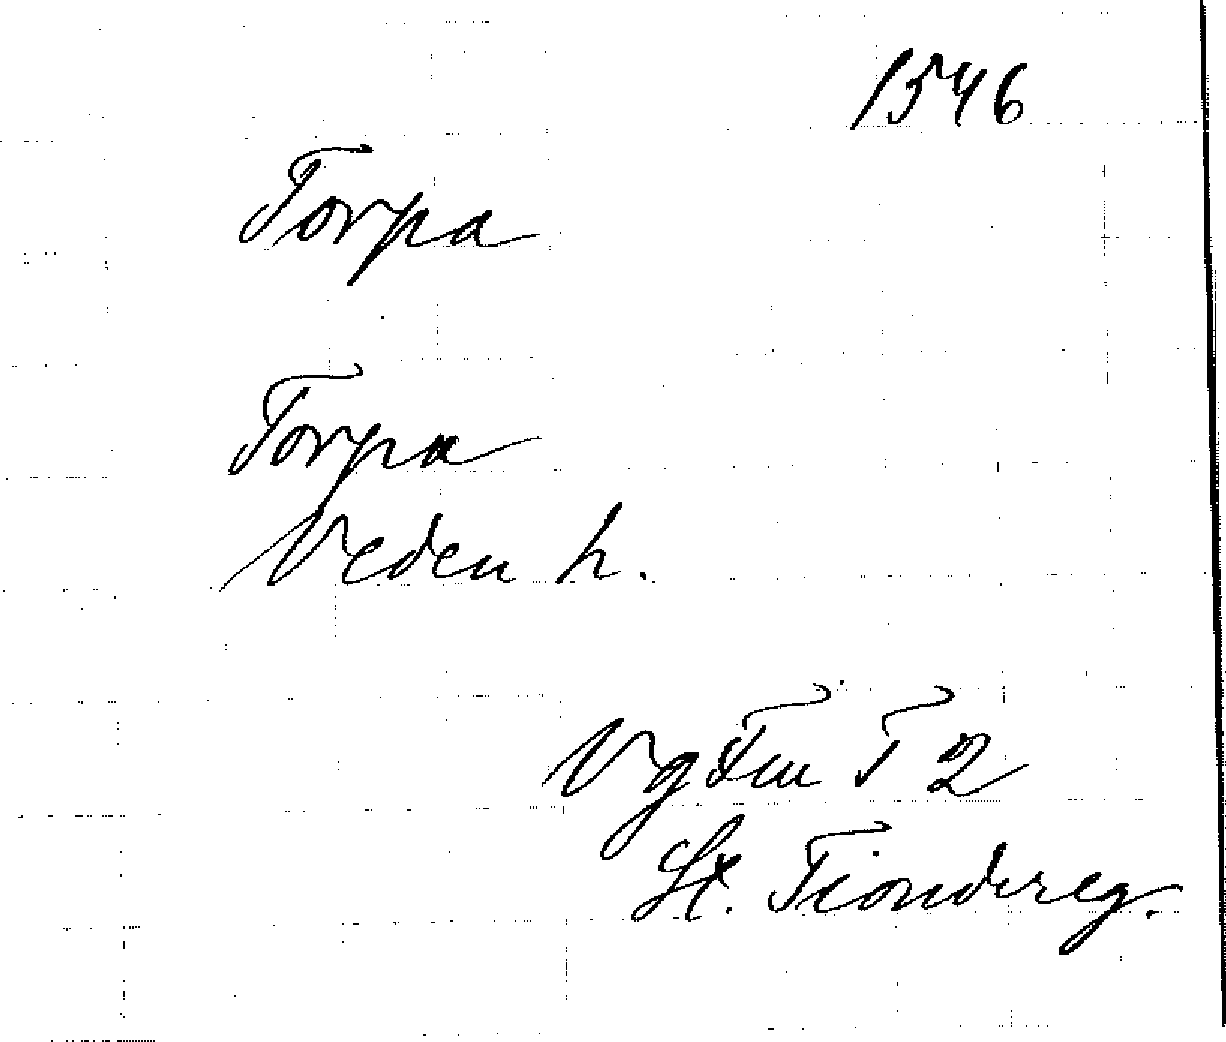 1546
Torpa
Torpa
Veden h.
Vg Tiu T 2
St. Tiondereg.